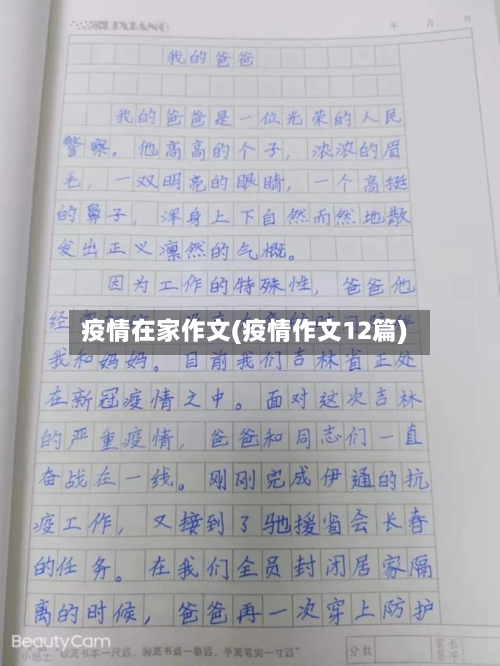 LIXIANG
年 月 日
我的爸爸
我的爸爸是一位光荣的人民
警察。他高高的个子，浓浓的眉
毛，一双明亮的眼睛，一个高挺
的鼻子，浑身上下自然而然地散
发出正义凛然的气概。
因为工作的特殊性，爸爸他
经
疫情在家作文(疫情作文12篇)
我和妈妈。目前我们吉林省正处
在新冠疫情之中。面对这次吉林
的严重疫情，爸爸和同志们一直
奋战在一线。刚刚完成伊通的抗
疫工作，又接到了驰援省会长春
的任务。在我们全员封闭居家隔
离的时候，爸爸再一次穿上防护
BeautyCam
小贴士 眼离书本一尺远，胸离书桌一拳远，手离笔尖一寸远"
分数
家长
签字